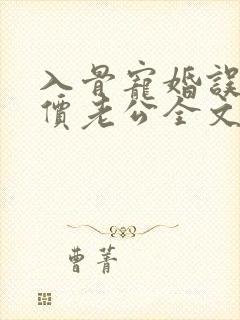 入骨寵婚誤
價老公全文
曹菁